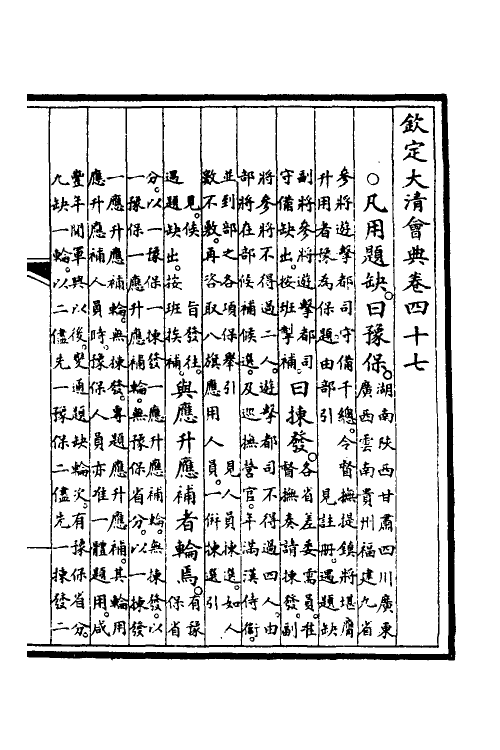 欽定大清會典卷四十七
○凡用題缺曰豫保。湖南陝西甘肅四川廣東
廣西雲南貴州福建九省
參將遊擊都司守備千總。令督撫提鎮將堪膺
升用者豫為保題由部引　見註冊。遇題缺
副將參將遊擊都司
守備缺出。按班掣補。曰揀發。各省差委需員。准
督撫奏請揀發。副
將參將不得過二人。遊擊都司不得過四人。由
部將在部候補候選。及巡撫營官。年滿漢侍衛。
並到部之各項保舉引　見人員揀選。如人
數不敷。再咨取八旗應用人員。一併揀選引
見。候　旨發往。
遇題缺出。按班挨補。與應升應補者輪焉。有豫
保省
分。以一豫保一揀發一應升應補輪。無揀發。以
一豫保一應升應補輪。無豫保省分。以一揀發
一應升應補輪。無揀發。專題應升應補。其輪用
應升應補人員時。豫保人員亦准一體題用。咸
豐年間軍興以後。變通題缺輪次。有豫保省分。
九缺一輪。以二儘先一豫保二儘先一揀發二